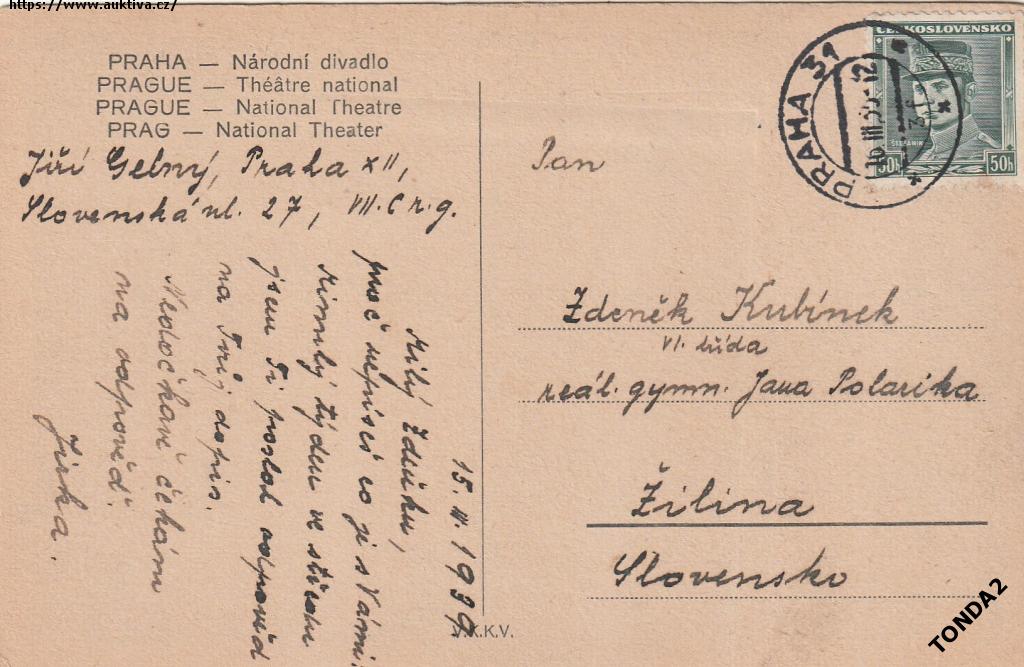 https://www.auktiva.cz/
PRAHA — Národní divadlo
PRAGUE — Théâtre national
PRAGUE — National Theatre
PRAG — National Theater
Jiří Gelný, Praha XII,
Slovenská ul. 27, VII.C r.g.
15. III. 1939
Milý Zdeňku,
proč nepíšeš co je s Vámi.
Minulý týden ve středu
jsem Ti poslal odpověď
na Tvůj dopis.
Nedočkavě čekám
na odpověď.
Jirka.
V.K.K.V.
Pan
Zdeněk Kubínek
VI. třída
reál. gymn. Jana Polarika
Žilina
Slovensko
PRAHA 31
ČESKOSLOVENSKO
ŠTEFÁNIK
50h 50h
TONDA2